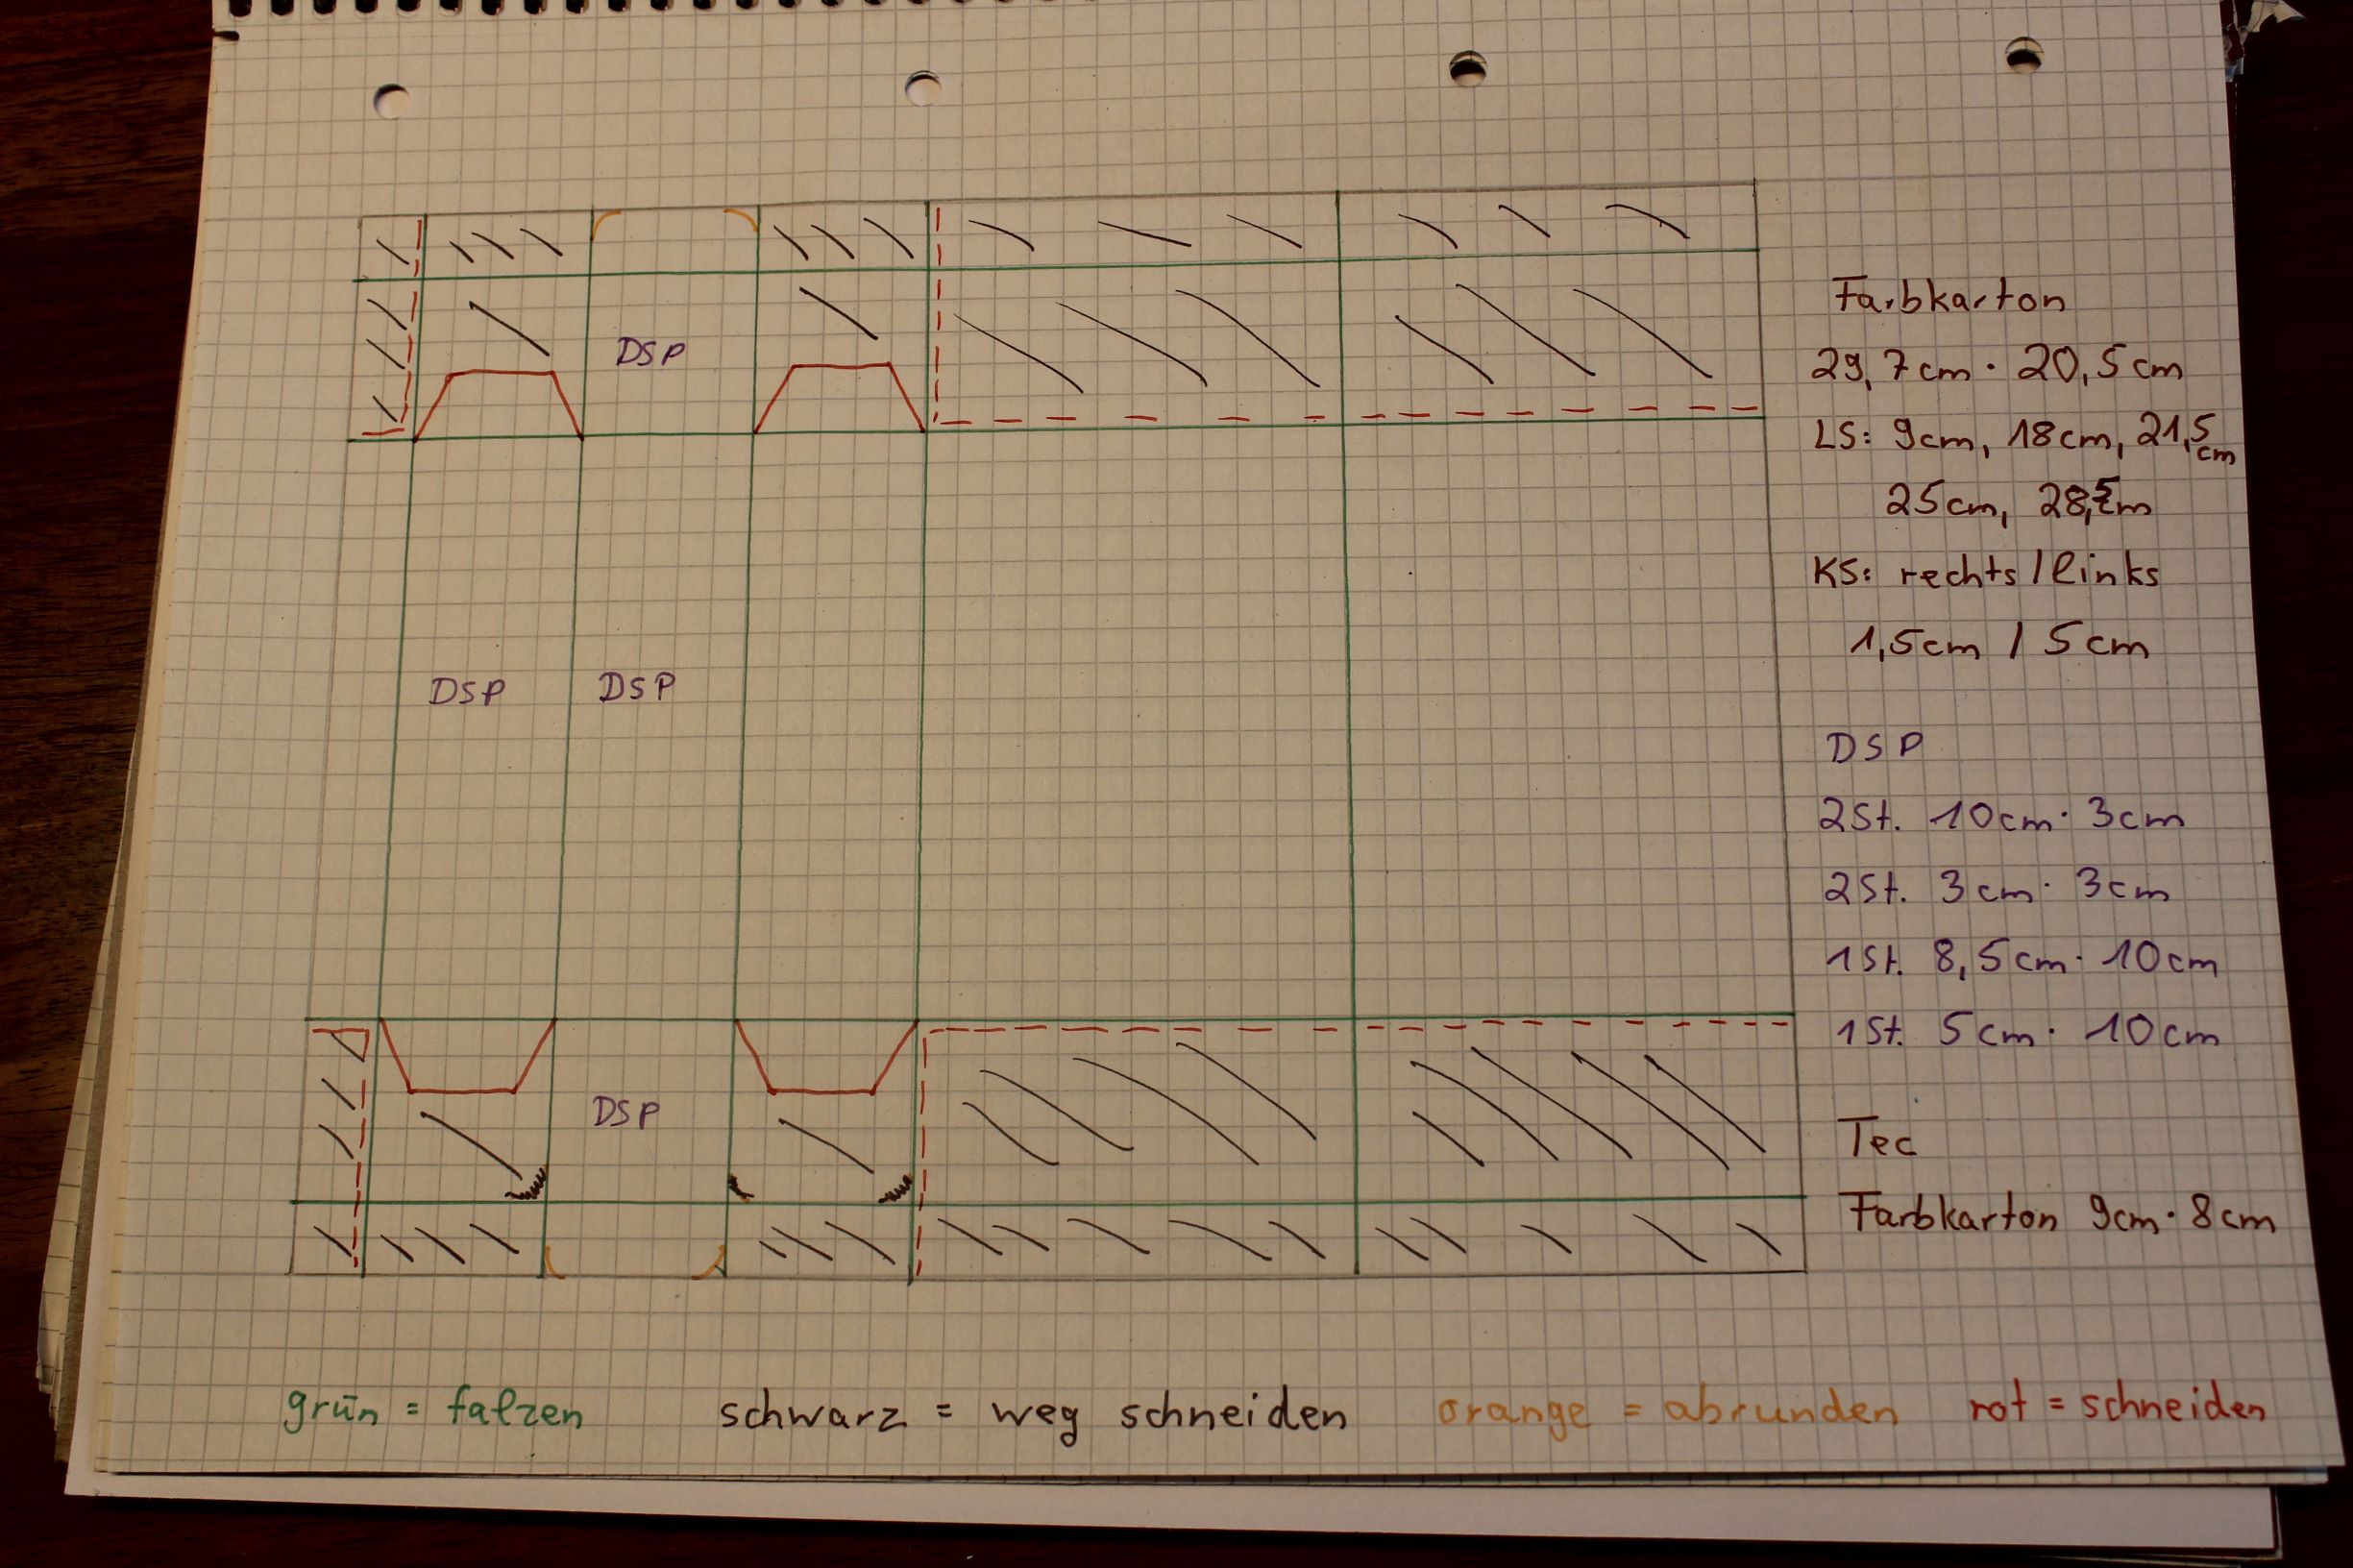 DSP
DSP
DSP
DSP
Farbkarton
29,7cm · 20,5cm
LS: 9cm, 18cm, 21,5cm
25cm, 28,5cm
KS: rechts / links
1,5cm / 5cm
DSP
2St. 10cm · 3cm
2St. 3cm · 3cm
1St. 8,5cm · 10cm
1St. 5cm · 10cm
Tec
Farbkarton 9cm · 8cm
grün = falzen schwarz = weg schneiden orange = abrunden rot = schneiden